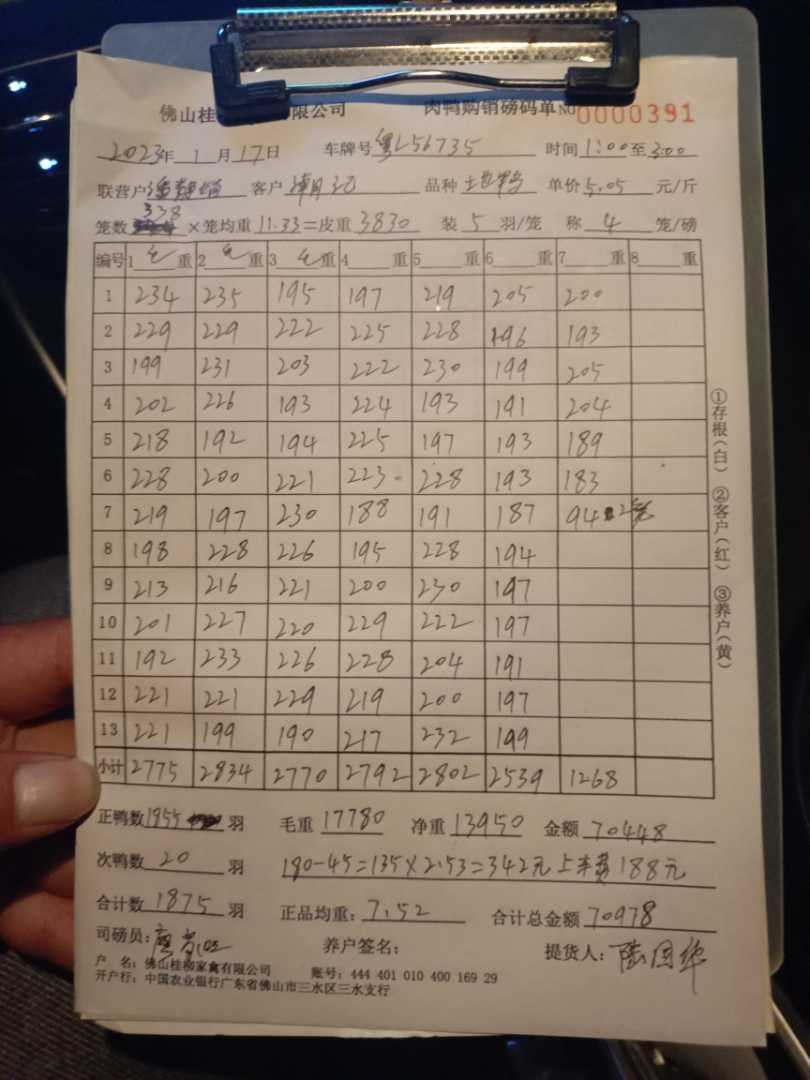 佛山桂 限公司 肉鸭购销磅码单 NO 0000391
2023年 1月 17日 车牌号 粤L56735 时间 1:00至 3:00
联营户 客户 品种 土鸭 单价 5.05 元/斤
笼数 338 ×笼均重 11.33=皮重 3830 装 5 羽/笼 称 4 笼/磅
编号 1 毛 重 2 毛 重 3 毛 重 4 重 5 重 6 重 7 重 8 重
1 234 235 195 197 219 205 200
2 229 229 222 225 228 196 193
3 199 231 203 222 230 199 205
4 202 226 193 224 193 191 204
5 218 192 194 225 197 193 189
6 228 200 221 223 228 193 183
7 219 197 230 188 191 187 94
8 198 228 226 195 228 194
9 213 216 221 200 230 197
10 201 227 220 229 222 197
11 192 233 226 228 204 191
12 221 221 229 219 200 197
13 221 199 190 217 232 199
小计 2775 2834 2770 2792 2802 2539 1268
①存根(白) ②客户(红) ③养户(黄)
正鸭数 1855 羽 毛重 17780 净重 13950 金额 70448
次鸭数 20 羽 180-45=135×2.53=342元 上车费 188元
合计数 1875 羽 正品均重: 7.52 合计总金额 70978
司磅员: 养户签名: 提货人: 陆国华
户 名: 佛山桂柳家禽有限公司 账号: 444 401 010 400 169 29
开户行: 中国农业银行广东省佛山市三水区三水支行